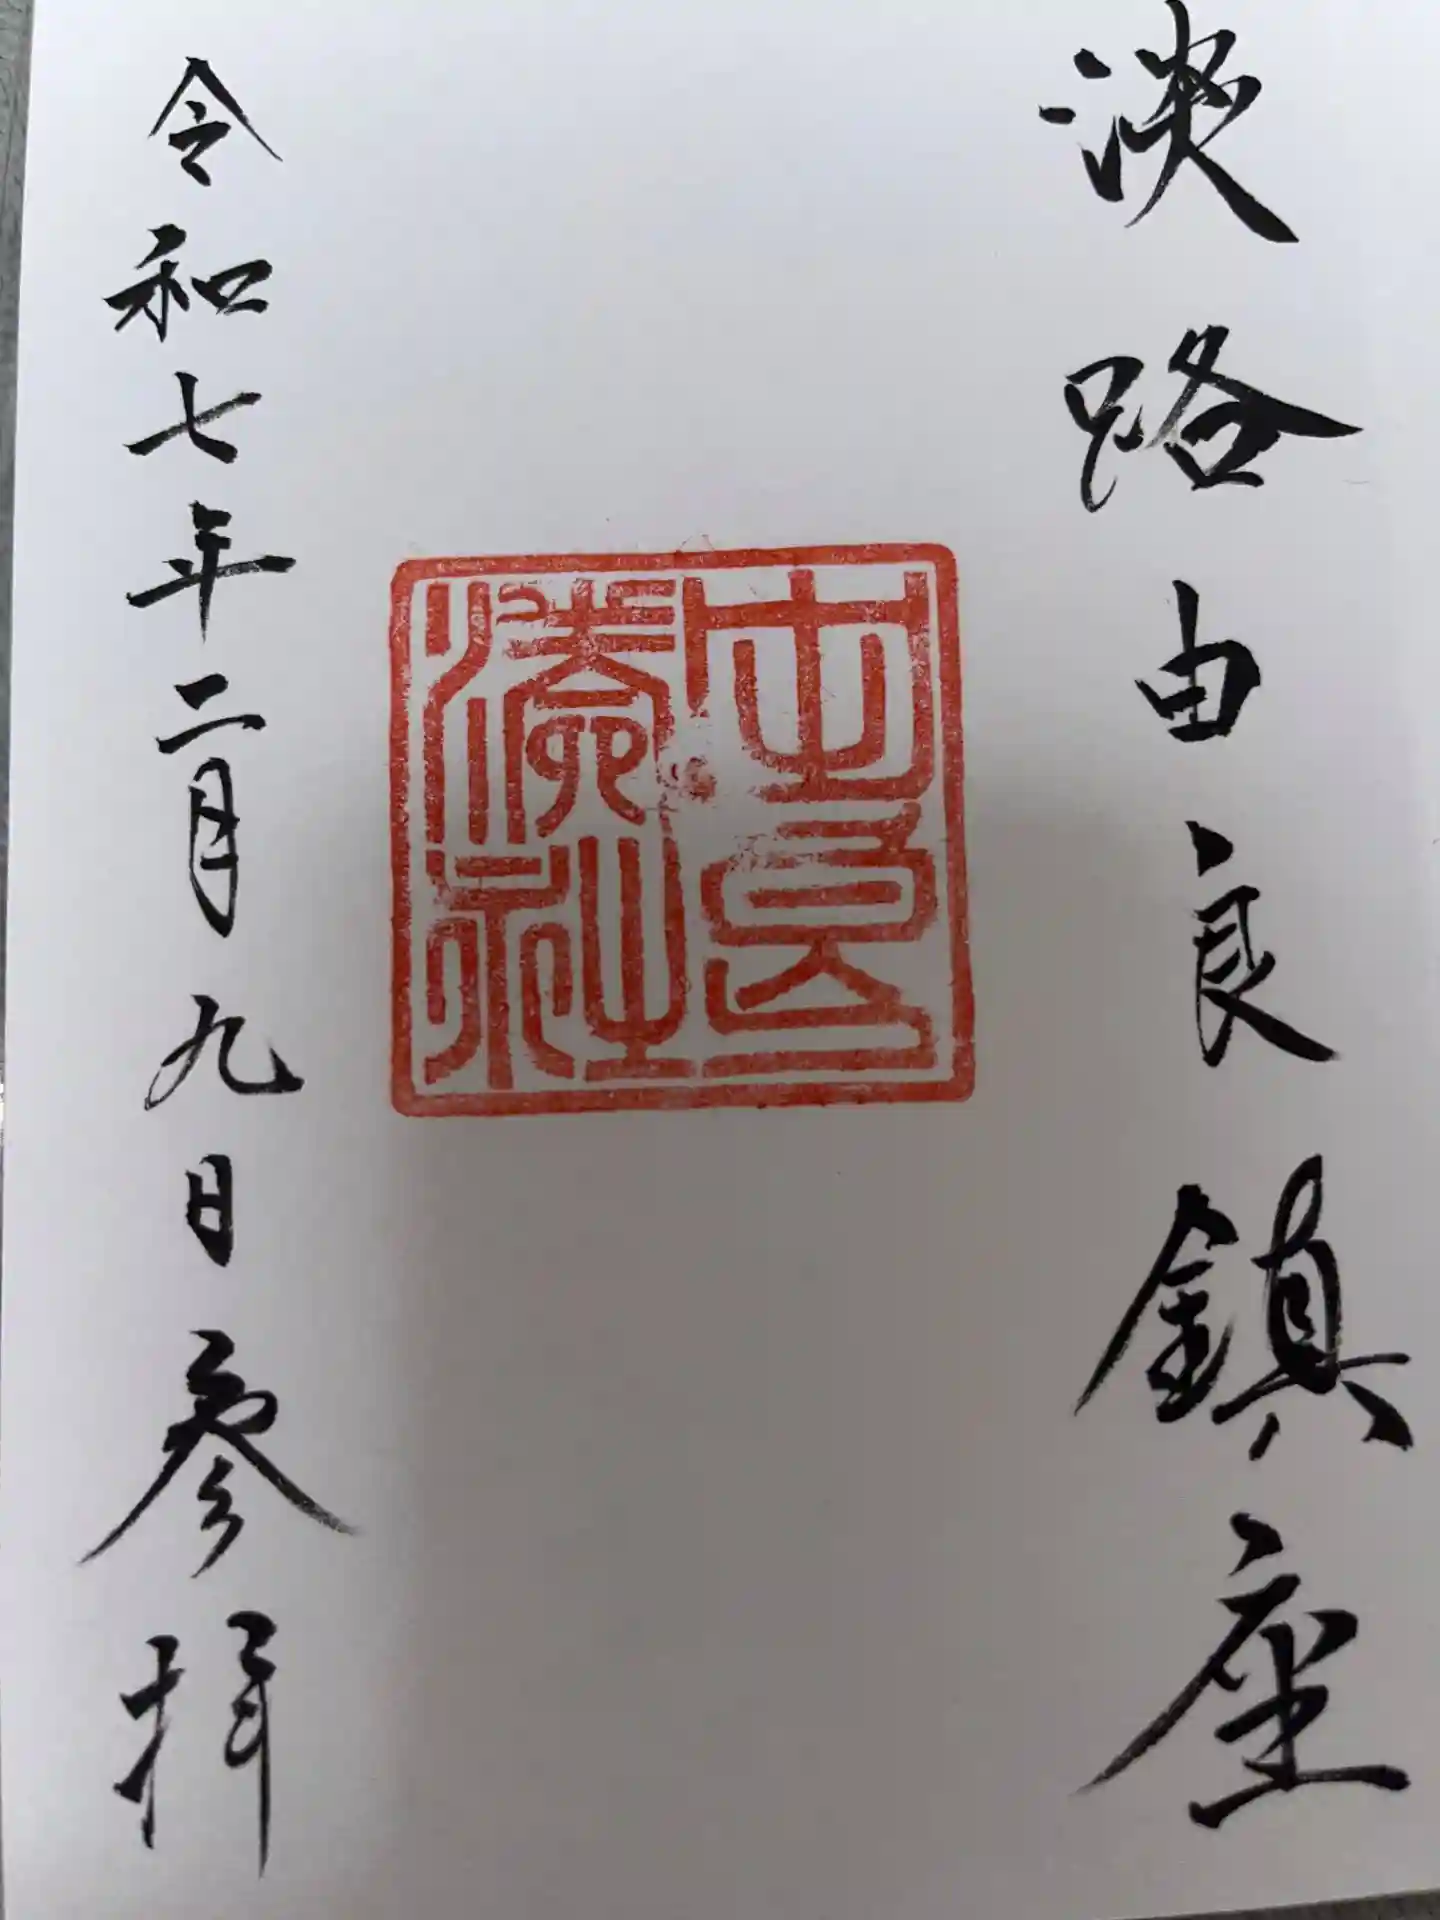 淡路由良鎮座
由良湊社
令和七年二月九日参拝